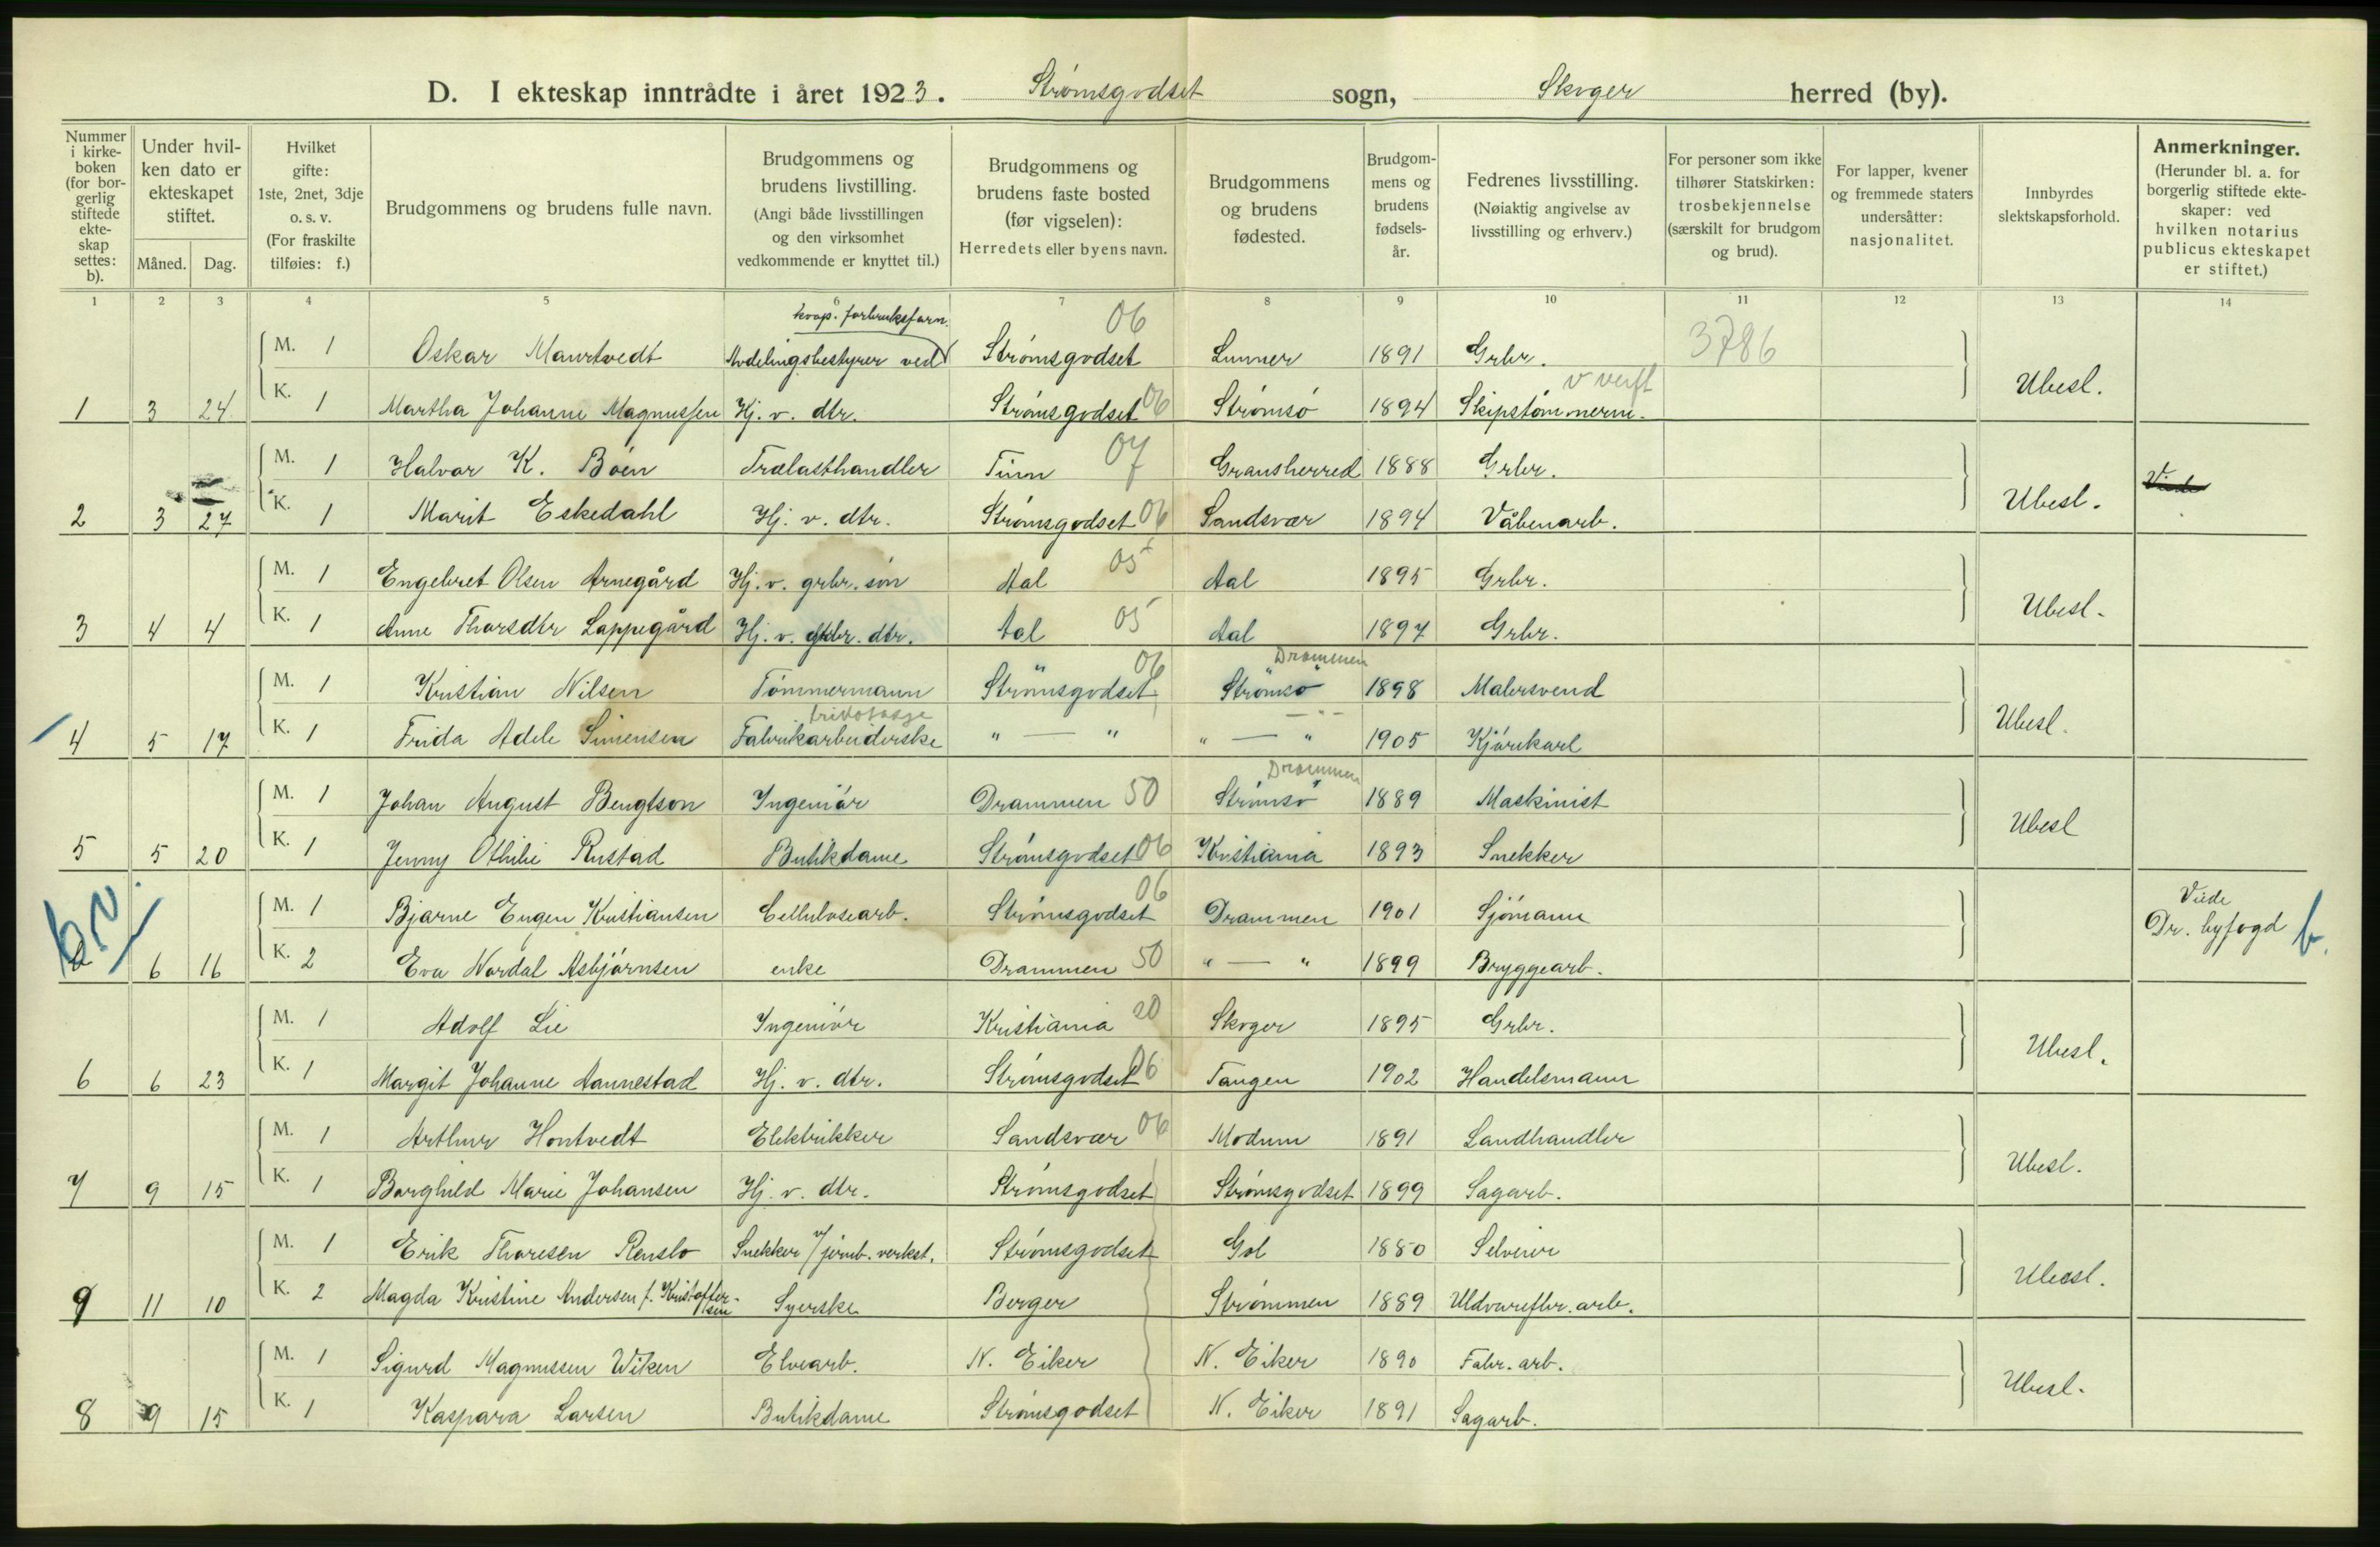 D. I ekteskap inntrådte i året 1923. Strømsgodset sogn, Skoger herred (by).
Nummer i kirkeboken (for borgerlig stiftede ekteskap settes: b).
Under hvilken dato er ekteskapet stiftet.
Måned. Dag.
Hvilket gifte: 1ste, 2net, 3dje o. s. v. (For fraskilte tilføies: f.)
Brudgommens og brudens fulle navn.
Brudgommens og brudens livstilling. (Angi både livsstillingen og den virksomhet vedkommende er knyttet til.)
Brudgommens og brudens faste bosted (før vigselen): Herredets eller byens navn.
Brudgommens og brudens fødested.
Brudgommens og brudens fødselsår.
Fedrenes livsstilling. (Nøiaktig angivelse av livsstilling og erhverv.)
For personer som ikke tilhører Statskirken: trosbekjennelse (særskilt for brudgom og brud).
For lapper, kvener og fremmede staters undersåtter: nasjonalitet.
Innbyrdes slektskapsforhold.
Anmerkninger. (Herunder bl. a. for borgerlig stiftede ekteskaper: ved hvilken notarius publicus ekteskapet er stiftet.)
1 2 3 4 5 6 7 8 9 10 11 12 13 14
koop. forbruksforn.
M. 1 Oskar Maurtvedt Avdelingsbestyrer ved Strømsgodset 06 Lunner 1891 Grbr. 3786
v verft
1 3 24 K. 1 Martha Johanne Magnussen Hj. v. dtr. Strømsgodset 06 Strømsø 1894 Skipstømmerm. Ubesl.
M. 1 Halvor K. Bøen Trælasthandler Tinn 07 Gransherred 1888 Grbr.
2 3 27 K. 1 Marit Eskedahl Hj. v. dtr. Strømsgodset 06 Sandsvær 1894 Våbenarb. Ubesl.
M. 1 Engebret Olsen Arnegård Hj. v. grbr. søn Aal 05 Aal 1895 Grbr.
3 4 4 K. 1 Anne Thorsdtr Lappegård Hj. v. gbr. dtr. Aal 05 Aal 1897 Grbr. Ubesl.
Drammen
M. 1 Kristian Nilsen Tømmermann Strømsgodset 06 Strømsø 1898 Malersvend
trikotasje
4 5 17 K. 1 Frida Adele Simensen Fabrikarbeiderske " — " " — " 1905 Kjørekarl Ubesl.
Drammen
M. 1 Johan August Bengtson Ingeniør Drammen 50 Strømsø 1889 Maskinist
5 5 20 K. 1 Jenny Othilie Rustad Butikdame Strømsgodset 06 Kristiania 1893 Snekker Ubesl
M. 1 Bjarne Eugen Kristiansen Cellulosearb. Strømsgodset 06 Drammen 1901 Sjømann Viede Dr. byfogd b.
6 16 K. 2 Eva Nordal Asbjørnsen enke Drammen 50 " — " 1899 Bryggearb.
M. 1 Adolf Lie Ingeniør Kristiania 20 Skoger 1895 Grbr.
6 6 23 K. 1 Margit Johanne Aannestad Hj. v. dtr. Strømsgodset 06 Tangen 1902 Handelsmann Ubesl.
M. 1 Arthur Hontvedt Elektrikker Sandsvær 06 Modum 1891 Landhandler
7 9 15 K. 1 Borghild Marie Johansen Hj. v. dtr. Strømsgodset Strømsgodset 1899 Sagarb. Ubesl.
M. 1 Erik Thoresen Renslo Snekker v/ jernb. verkst. Strømsgodset Gol 1880 Selveier
9 11 10 K. 2 Magda Kristine Andersen f. Kristoffersen Syerske Berger Strømmen 1889 Uldvarefbr. arb. Ubesl.
M. 1 Sigurd Magnussen Wiken Elvearb. N. Eiker N. Eiker 1890 Fabr. arb.
8 9 15 K. 1 Kaspara Larsen Butikdame Strømsgodset N. Eiker 1891 Sagarb. Ubesl.